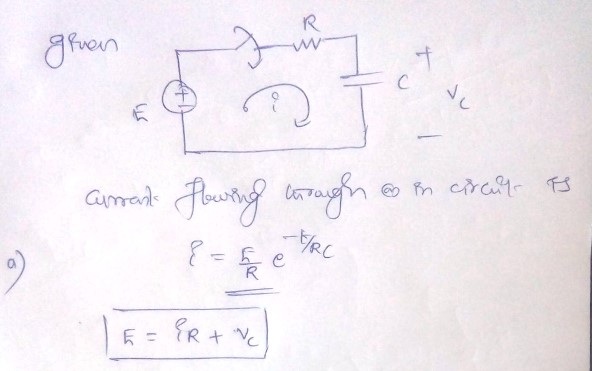 given
R
E
+
i
C
+
Vc
-
current flowing through in circuit is
a)
i = E/R e^-t/RC
E = iR + Vc